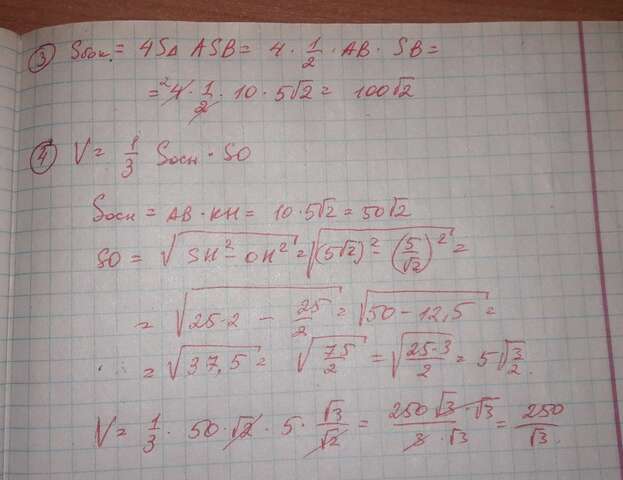 ③ Sбок. = 4S△ ASB = 4 · 1/2 · AB · SB =
= ²4 · 1/2 · 10 · 5√2 = 100√2
④ V = 1/3 Sосн · SO
Sосн = AB · KH = 10 · 5√2 = 50√2
SO = √(SH² - OH²) = √((5√2)² - (5/√2)²) =
= √(25·2 - 25/2) = √(50 - 12,5) =
= √37,5 = √(75/2) = √(25·3/2) = 5√(3/2).
V = 1/3 · 50 · √2 · 5 · √3/√2 = 250√3 · √3/(3 · √3) = 250/√3.